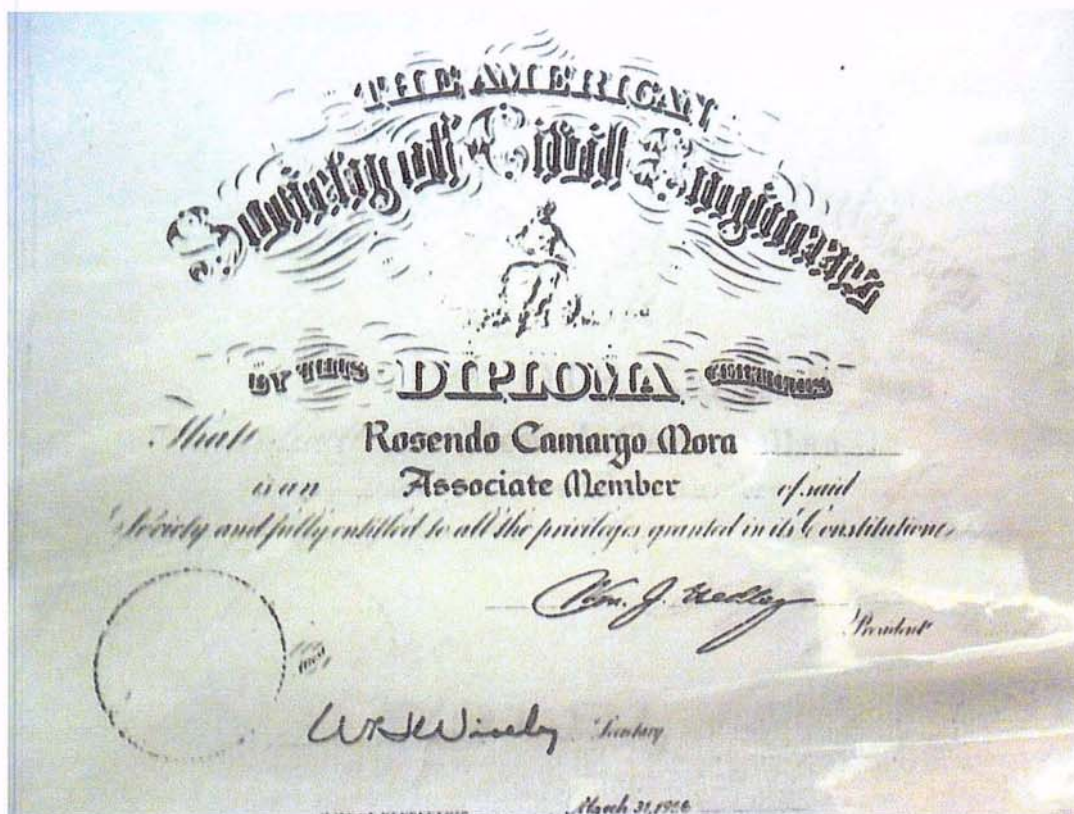 THE AMERICAN
Society of Civil Engineers
BY THIS DIPLOMA CERTIFIES
That Rosendo Camargo Mora
is an Associate Member of said
Society and fully entitled to all the privileges granted in its Constitution
Wm. J. Hedley
President
W H Wisely Secretary
March 31, 1966